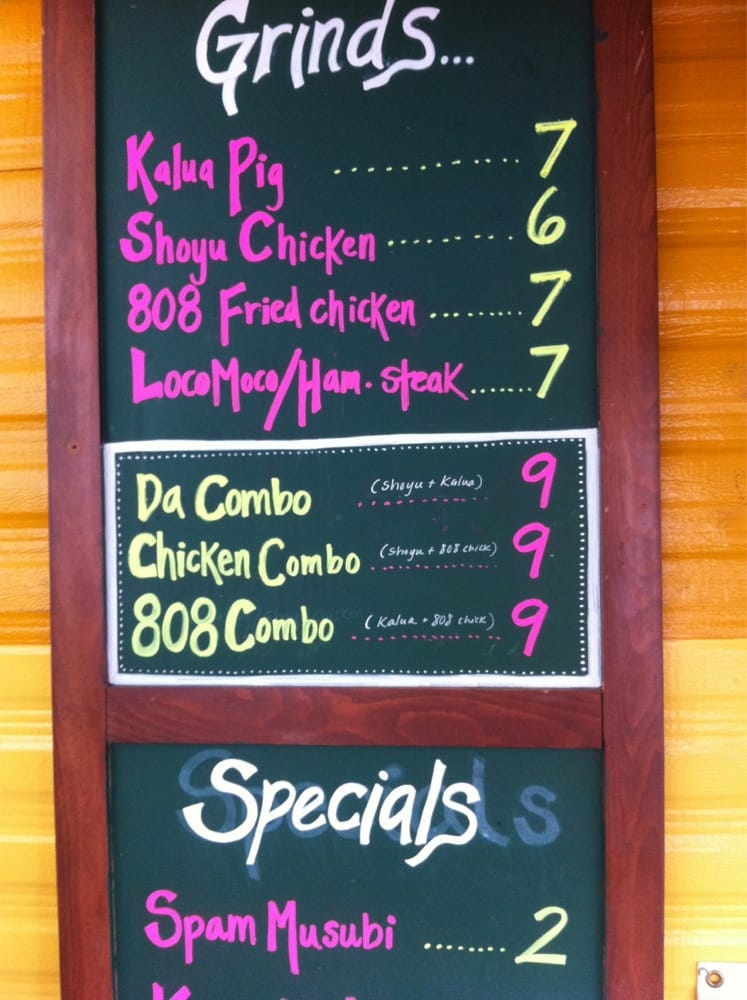 Grinds...
Kalua Pig .............. 7
Shoyu Chicken .......... 6
808 Fried chicken ......... 7
LocoMoco/Ham. steak ...... 7
Da Combo (Shoyu + Kalua) 9
Chicken Combo (Shoyu + 808 chick) 9
808 Combo (Kalua + 808 chick) 9
Specials
Spam Musubi ....... 2